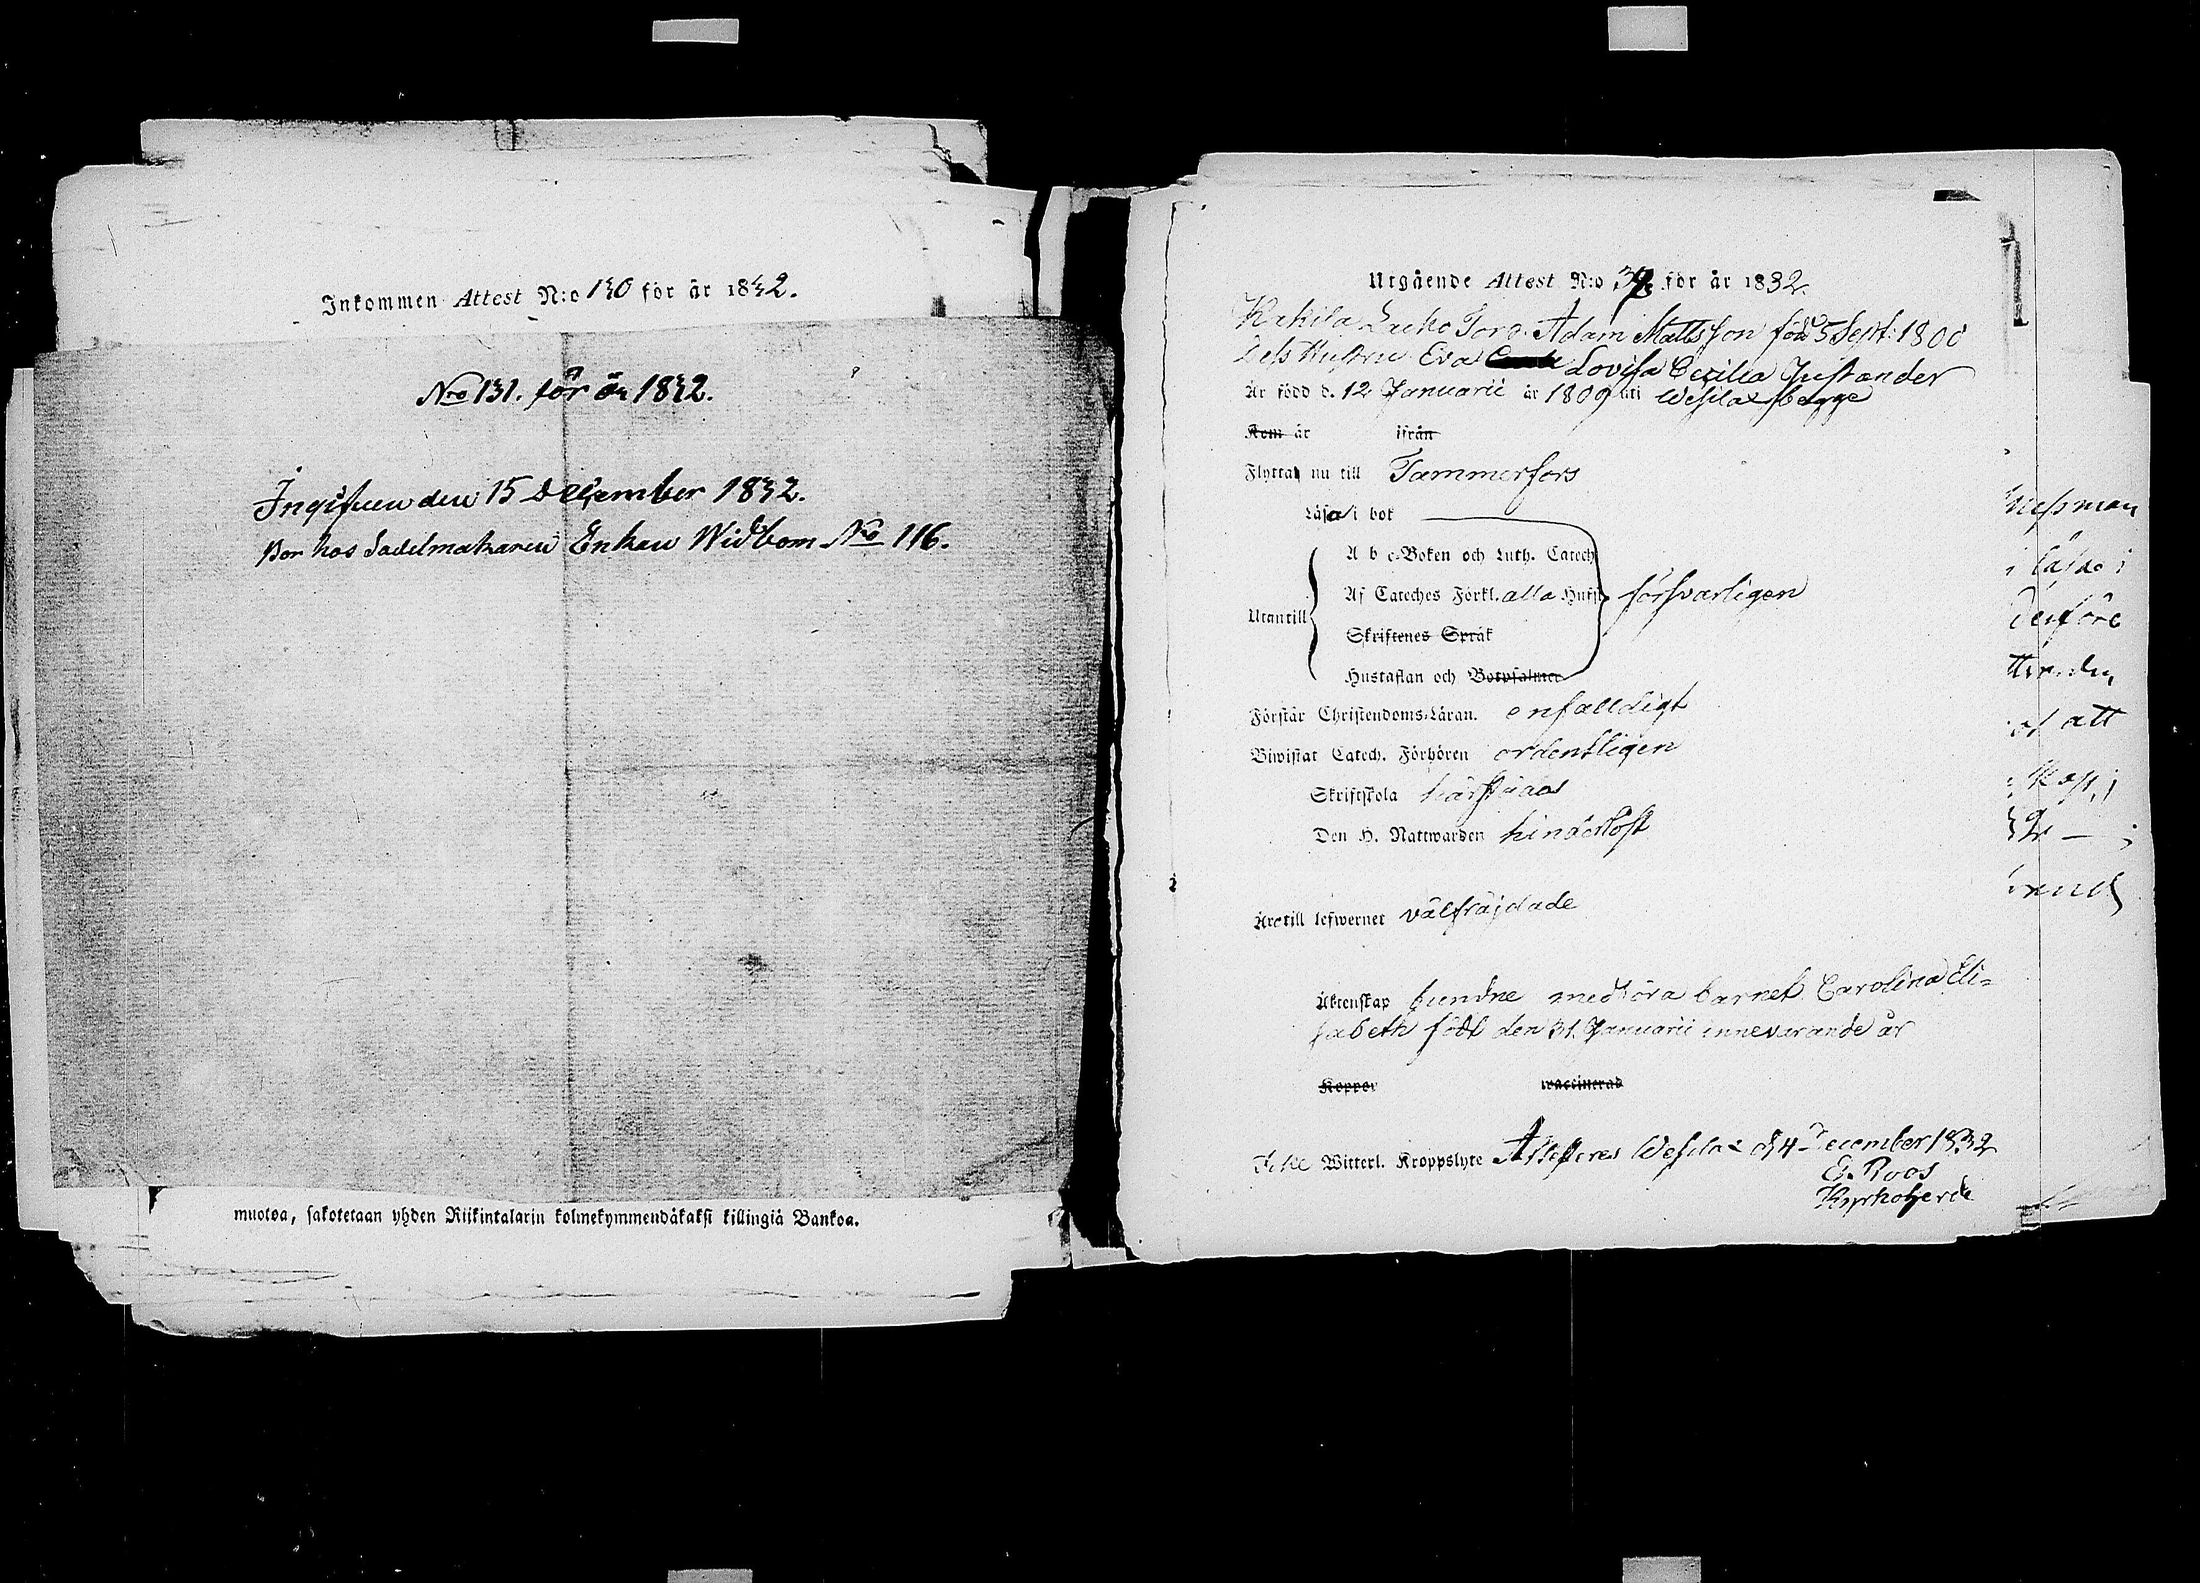 Inkommen Attest N:o 130 för år 1832.
Nro 131. för år 1832.
Ingifven den 15 December 1832.
Bor hos Sadelmakaren Enkan Widbom No 116.
muotoa, sakotetaan yhden Riikintalarin kolmekymmendäkaksi killingiä Bankoa.
Utgående Attest N:o 37 för år 1832.
Adam Mattsson född 5 Sept: 1800
Dess Hustru Eva Lovisa Cecilia Justander
Är född d. 12 Januarii år 1809 uti Wesilax begge
Kom år ifrån
Flytta nu till Tammerfors
Läsa i bok
A b c-Boken och Luth. Catech
Af Cateches Förkl. alla Hufst försvarligen
Utantill
Skriftenes Språk
Hustaflan och Botpsalmer
Förstår Christendoms-Läran. enfalldigt
Biwistat Catech. Förhören ordentligen
Skriftskola härstädes
Den H. Nattwarden hinderlöst
Äro till lefwernet välfräjdade
Äktenskap bundne medföra barnet Carolina Eli-
sabeth född den 31 Januarii innevarande år
Koppor waccinerad
Icke Witterl. Kroppslyte Attesteres Wesilax d 4 December 1832
E. Roos
Kyrkoherde
att